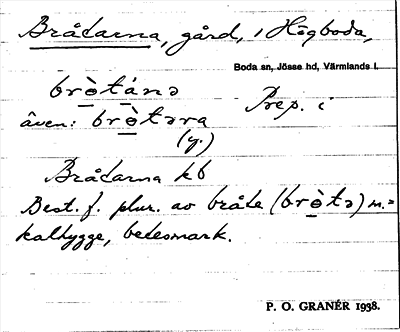 Bråtarna, gård, i Högboda,
Boda sn, Jösse hd, Värmlands l.
brò̱tánə Prep. i
även: brò̱təra
(y.)
Bråtarna kb
Best. f. plur. av bråte (brò̱tə) m. =
kalhygge, betesmark.
P. O. GRANÉR 1938.